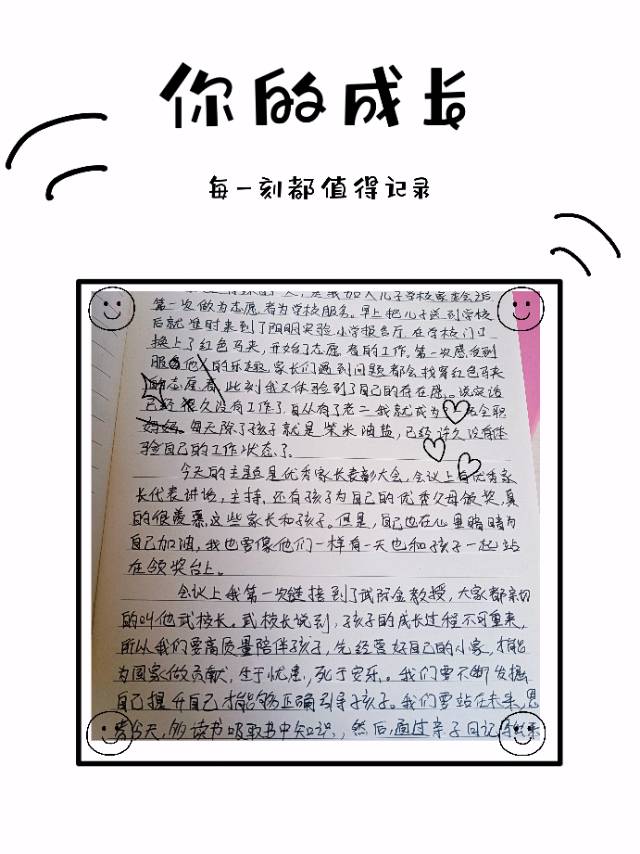 你的成长
每一刻都值得记录
天,是我加入儿子学校家委会后
第一次做为志愿者为学校服务。早上把儿子送到学校
后就准时来到了阴明实验小学报告厅在学校门口
换上了红色马夹,开始了志愿者的工作,第一次感受到
服务他人的乐趣,家长们遇到问题都会找穿红色马夹
的志愿者,此刻我又体验到了自己的存在感。说实话
已经很久没有工作了自从有了老二我就成为全职
妈妈。每天除了孩子就是柴米油盐,已经许久没有体
验自己的工作状态了。
今天的主题是优秀家长表彰大会,会议上有优秀家
长代表讲话,主持,还有孩子为自己的优秀父母颁奖,真
的很羡慕这些家长和孩子。但是,自己也在心里暗暗为
自己加油,我也要像他们一样有一天也和孩子一起站
在领奖台上。
会议上我第一次链接到了武际金教授,大家都亲切
的叫他武校长。武校长说到,孩子的成长过程不可重来,
所以我们要高质量陪伴孩子,先经营好自己的小家,才能
为国家做贡献,生于忧患,死于安乐。我们要不断发掘
自己提升自己才能够正确引导孩子。我们要站在未来,思
考今天,多读书吸取书中知识,然后,通过亲子日记